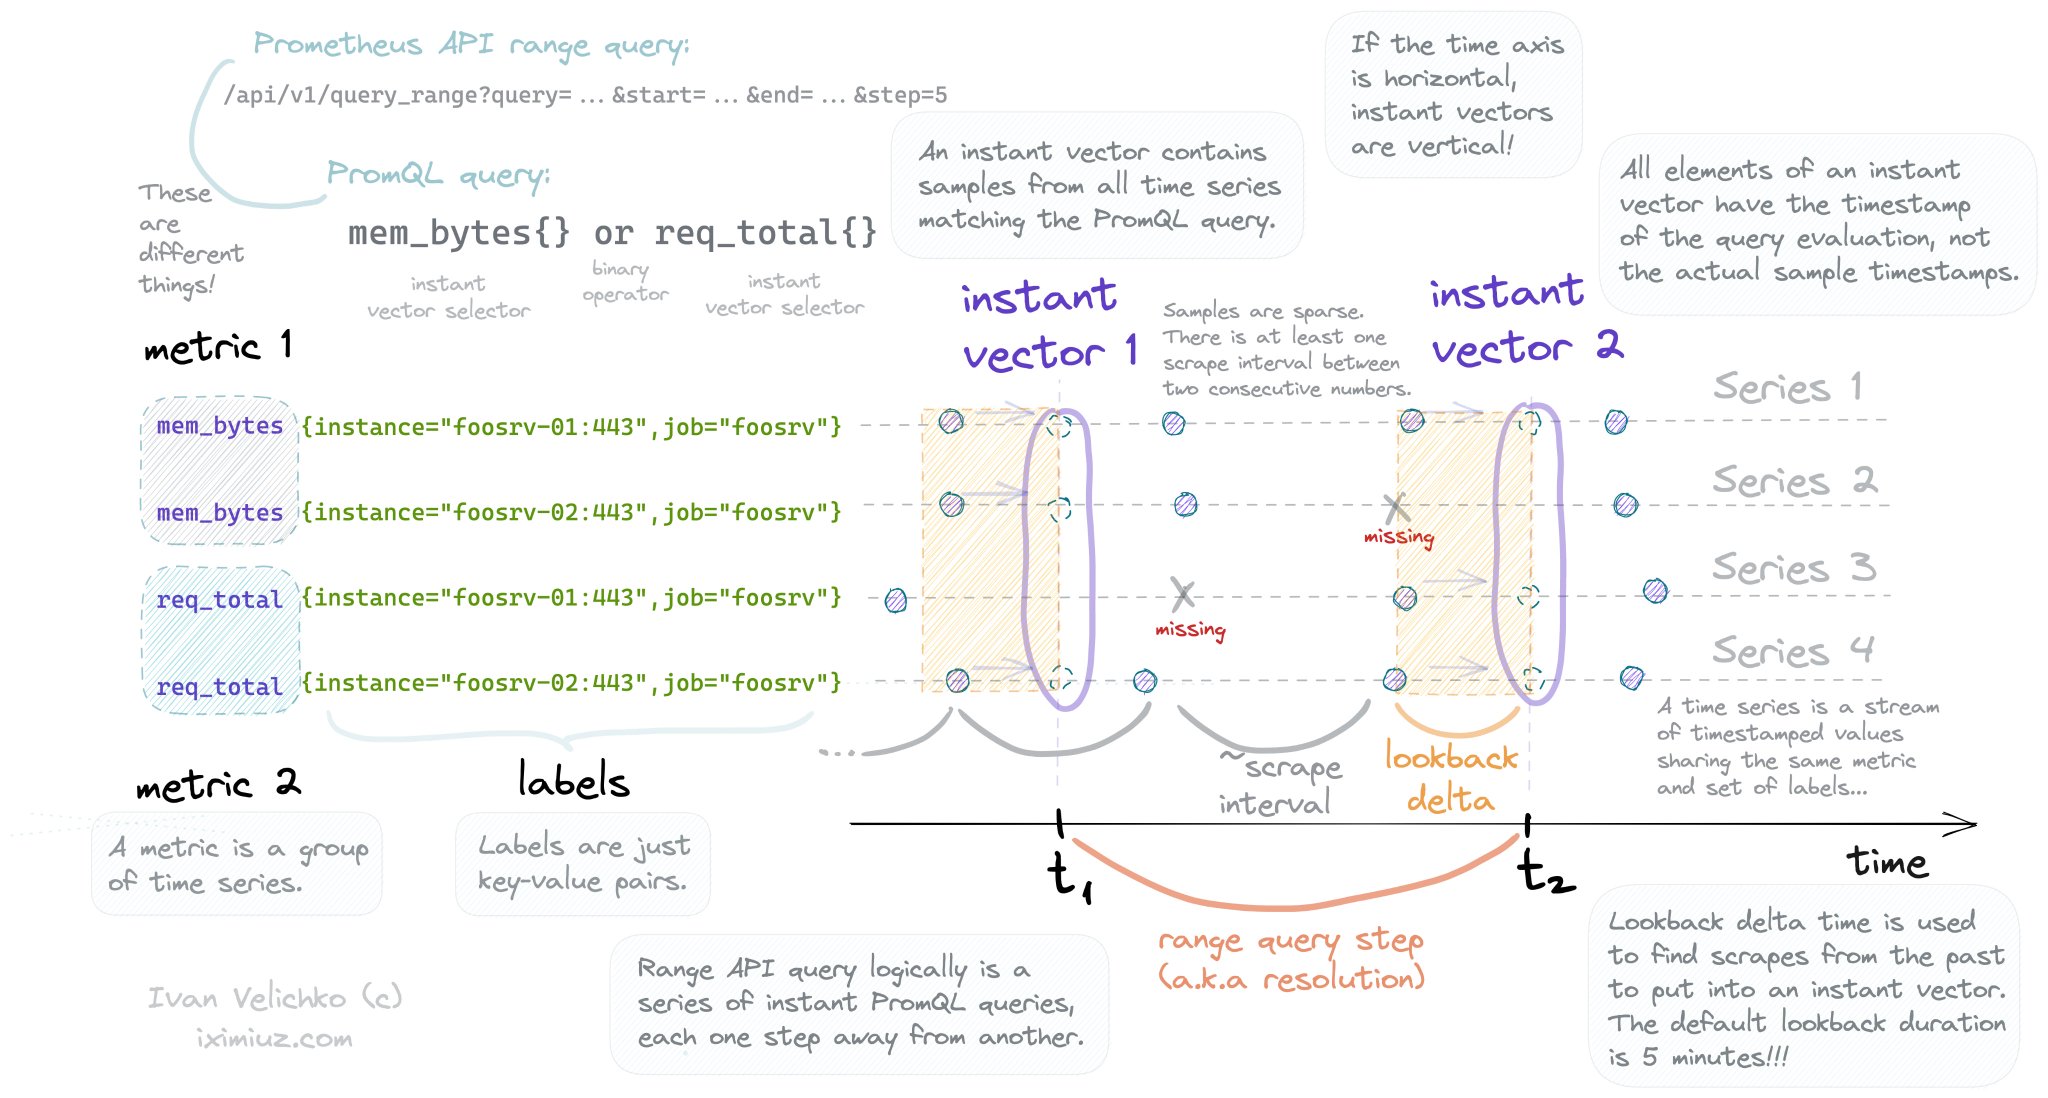 Prometheus API range query:
/api/v1/query_range?query=...&start=...&end=...&step=5
PromQL query:
These
are
different
things!
mem_bytes{} or req_total{}
instant
vector selector
binary
operator
instant
vector selector
An instant vector contains
samples from all time series
matching the PromQL query.
If the time axis
is horizontal,
instant vectors
are vertical!
All elements of an instant
vector have the timestamp
of the query evaluation, not
the actual sample timestamps.
instant
vector 1
Samples are sparse.
There is at least one
scrape interval between
two consecutive numbers.
instant
vector 2
metric 1
mem_bytes {instance="foosrv-01:443",job="foosrv"}
Series 1
mem_bytes {instance="foosrv-02:443",job="foosrv"}
Series 2
missing
req_total {instance="foosrv-01:443",job="foosrv"}
Series 3
missing
req_total {instance="foosrv-02:443",job="foosrv"}
Series 4
A time series is a stream
of timestamped values
sharing the same metric
and set of labels...
metric 2
labels
...
~scrape
interval
lookback
delta
A metric is a group
of time series.
Labels are just
key-value pairs.
t1
t2
time
range query step
(a.k.a resolution)
Range API query logically is a
series of instant PromQL queries,
each one step away from another.
Lookback delta time is used
to find scrapes from the past
to put into an instant vector.
The default lookback duration
is 5 minutes!!!
Ivan Velichko (c)
iximiuz.com